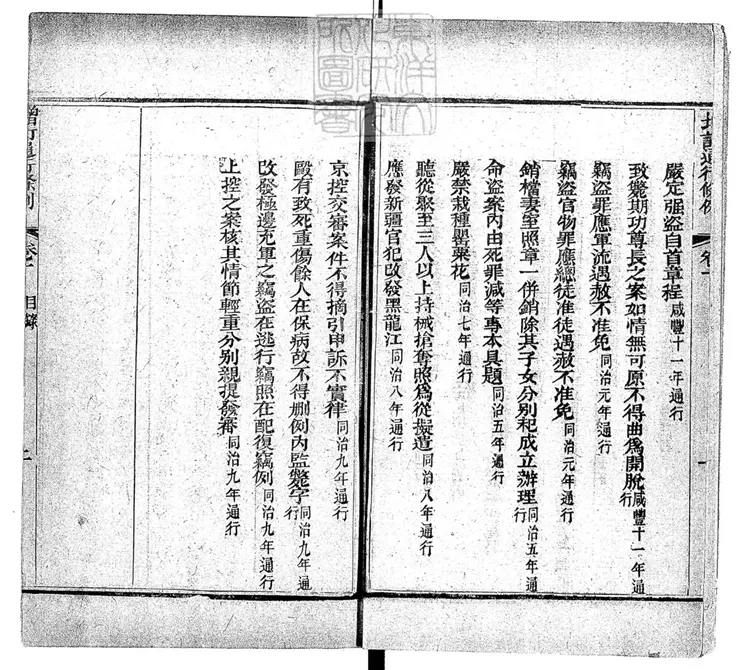 嚴定强盜自首章程咸豐十一年通行
致斃期功尊長之案如情無可原不得曲爲開脫咸豐十一年通行
竊盜罪應軍流遇赦不准免同治元年通行
竊盜官物罪應總徒准徒遇赦不准免同治元年通行
銷檔妻室照章一併銷除其子女分別已未成立辦理同治五年通行
命盜案內由死罪減等專本具題同治五年通行
嚴禁栽種罌粟花同治七年通行
聽從聚至三人以上持械搶奪照爲從擬遣同治八年通行
應發新疆官犯改發黑龍江同治八年通行
京控交審案件不得摘引申訴不實律同治九年通行
毆有致死重傷餘人在保病故不得刪例內監斃字同治九年通行
改發極邊充軍之竊盜在逃行竊照在配復竊例同治九年通行
上控之案核其情節輕重分別親提發審同治九年通行
目錄
二